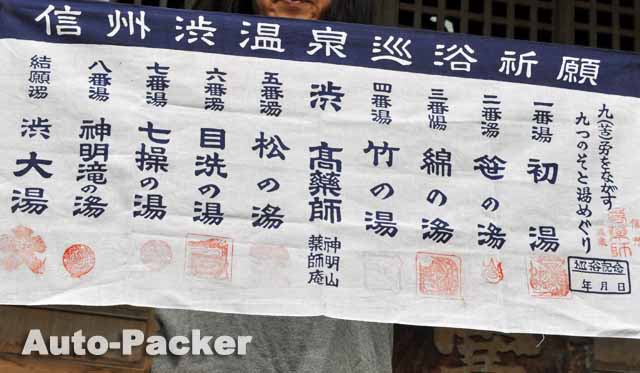 信州渋温泉巡浴祈願
九(苦)労をながす
九つのそと湯めぐり
巡浴記念
年月日
一番湯 初湯
二番湯 笹の湯
三番湯 綿の湯
四番湯 竹の湯
渋 高薬師 神明山 薬師庵
五番湯 松の湯
六番湯 目洗の湯
七番湯 七操の湯
八番湯 神明滝の湯
結願湯 渋大湯
Auto-Packer